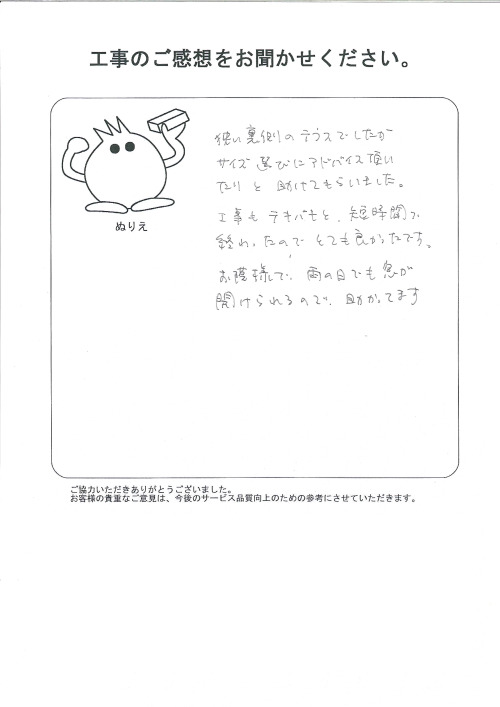 工事のご感想をお聞かせください。
ぬりえ
狭い裏側のテラスでしたが
サイズ選びにアドバイス頂い
たりと助けてもらいました。
工事もテキパキと、短時間で
終わったのでとても良かったです。
お陰様で、雨の日でも窓が
開けられるので、助かってます
ご協力いただきありがとうございました。
お客様の貴重なご意見は、今後のサービス品質向上のための参考にさせていただきます。